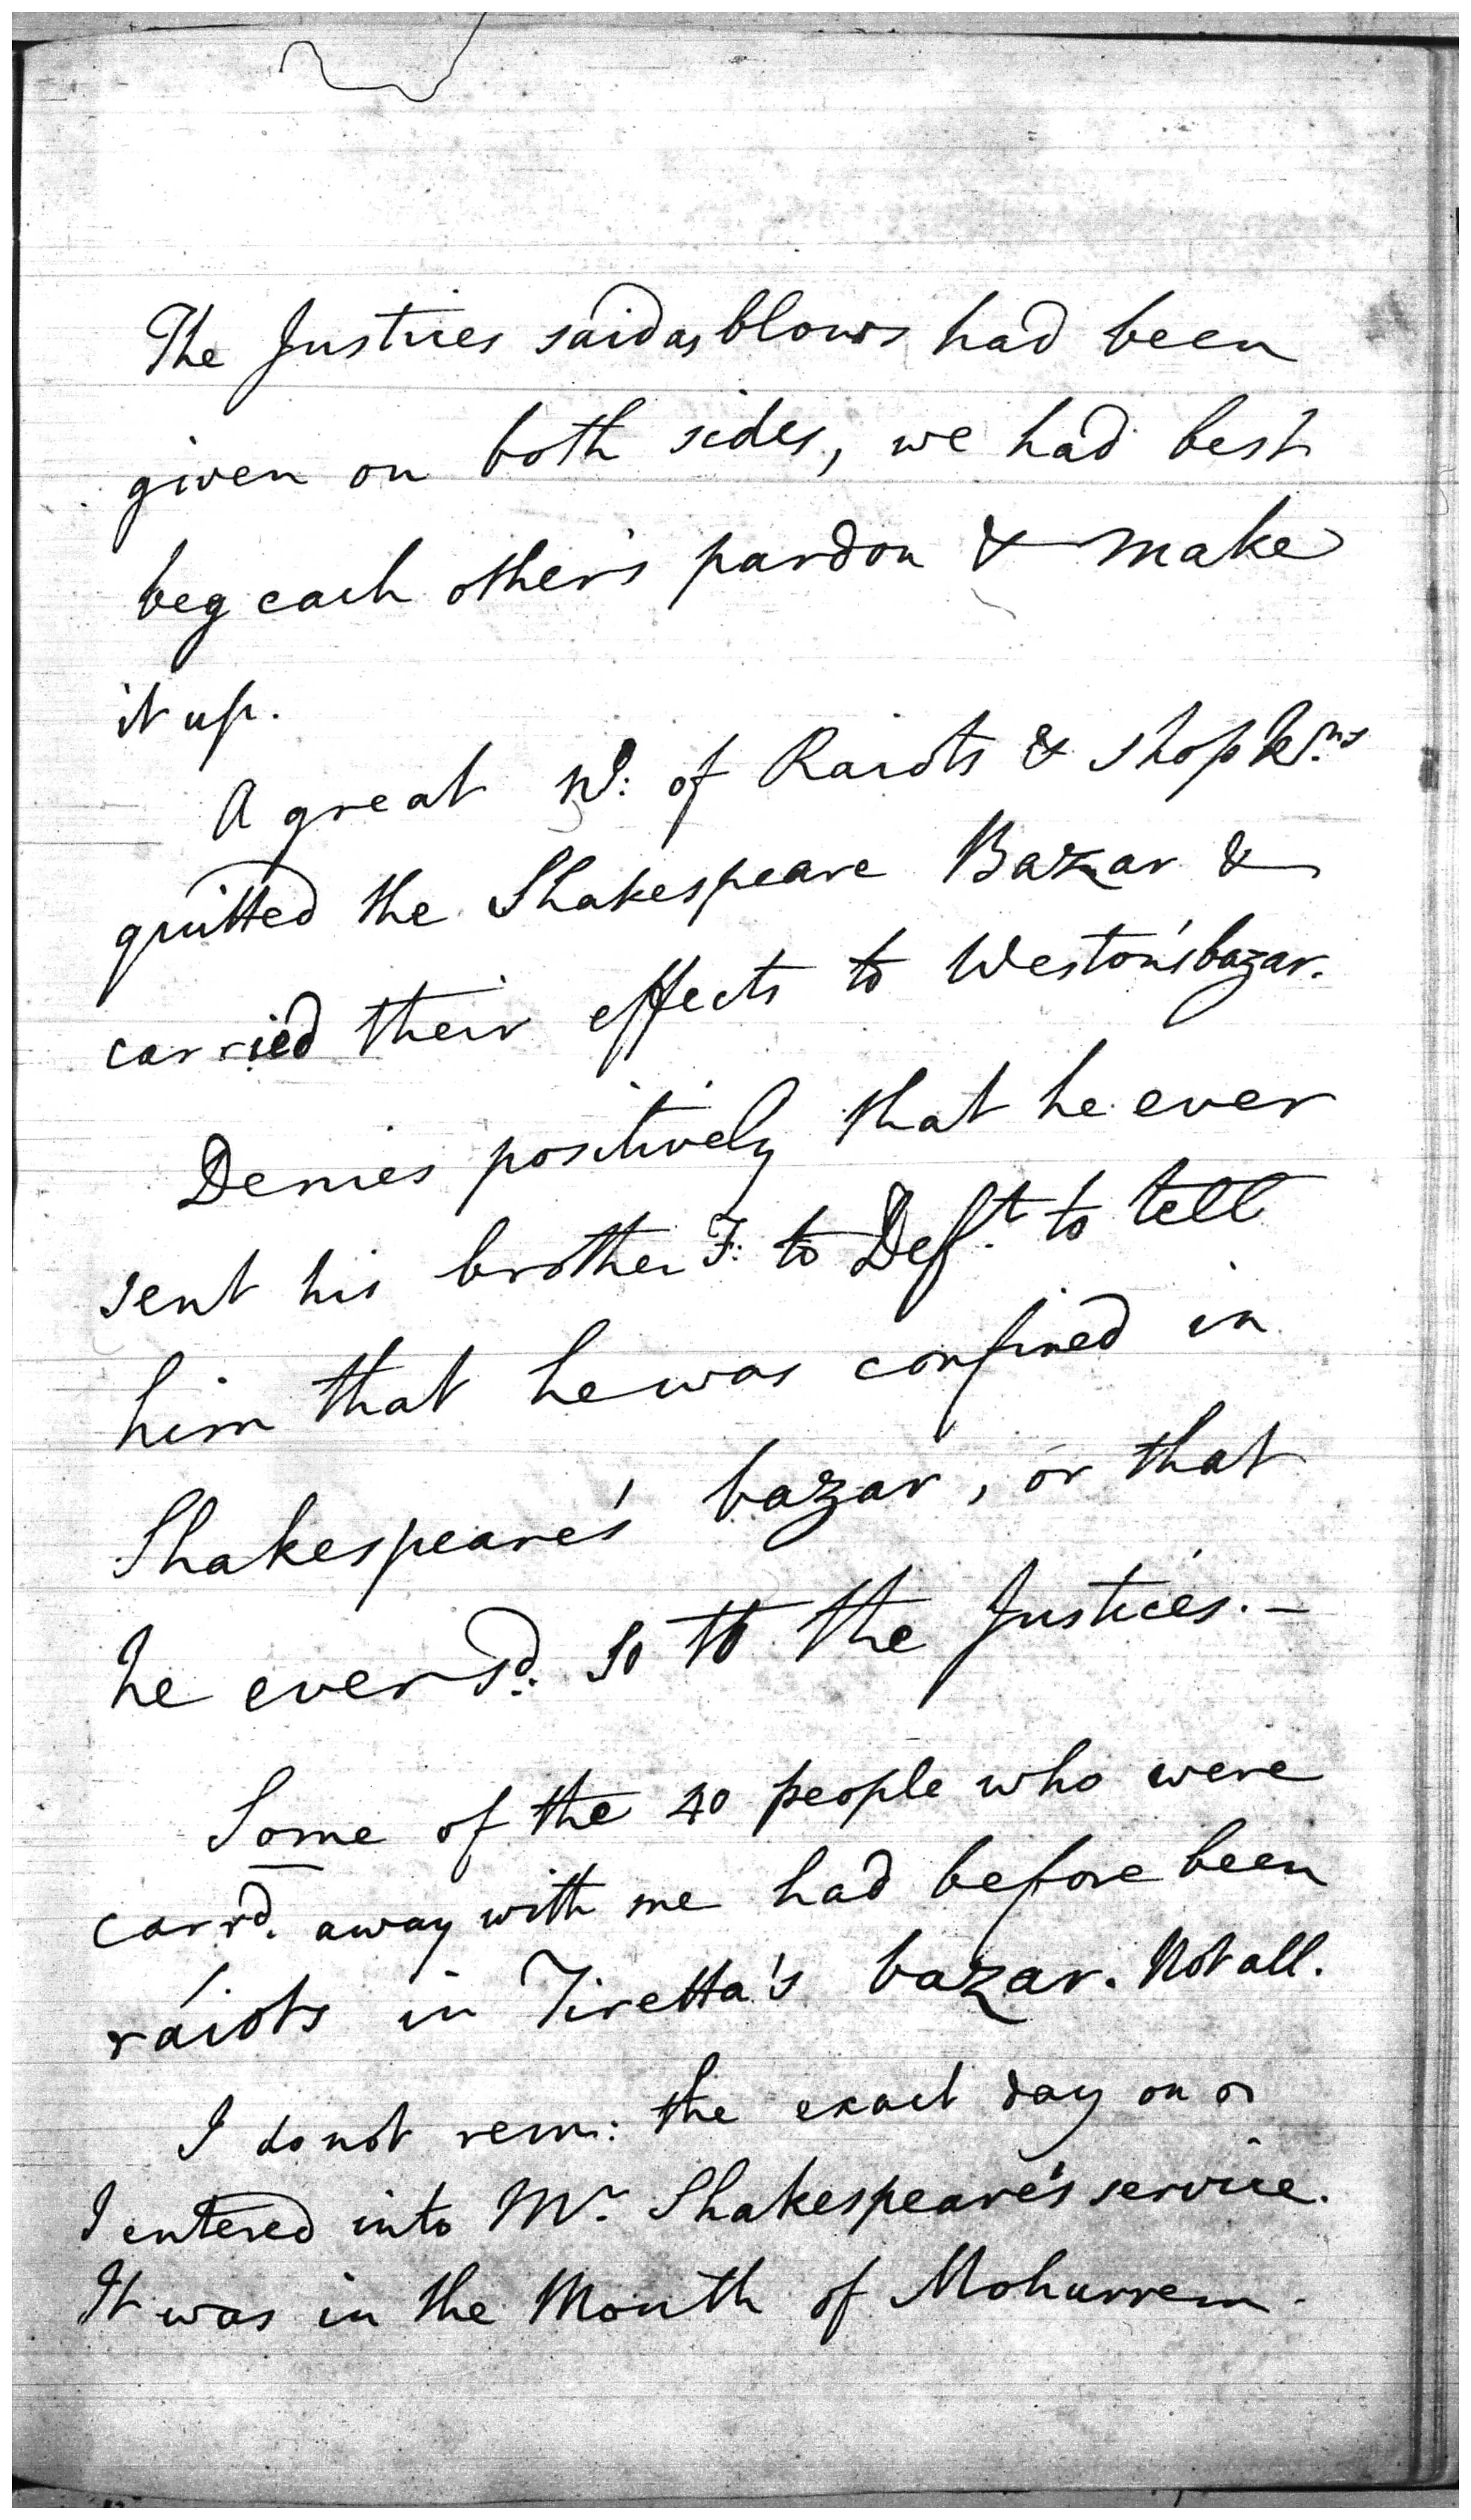 The Justices said as blows had been
given on both sides, we had best
beg each other's pardon & make
it up.
A great N°: of Raiots & shopk.rs
quitted the Shakespeare Bazar &
carried their effects to Weston's bazar.
Denies positively that he ever
sent his brother F: to Def.t to tell
him that he was confined in
Shakespeare's bazar, or that
he ever sd. so to the Justices. -
Some of the 40 people who were
carrd. away with me had before been
ráiots in Tiretta's bazar. Not all.
I do not rem: the exact day on
I entered into Mr. Shakespeare's service.
It was in the Month of Moharrem.